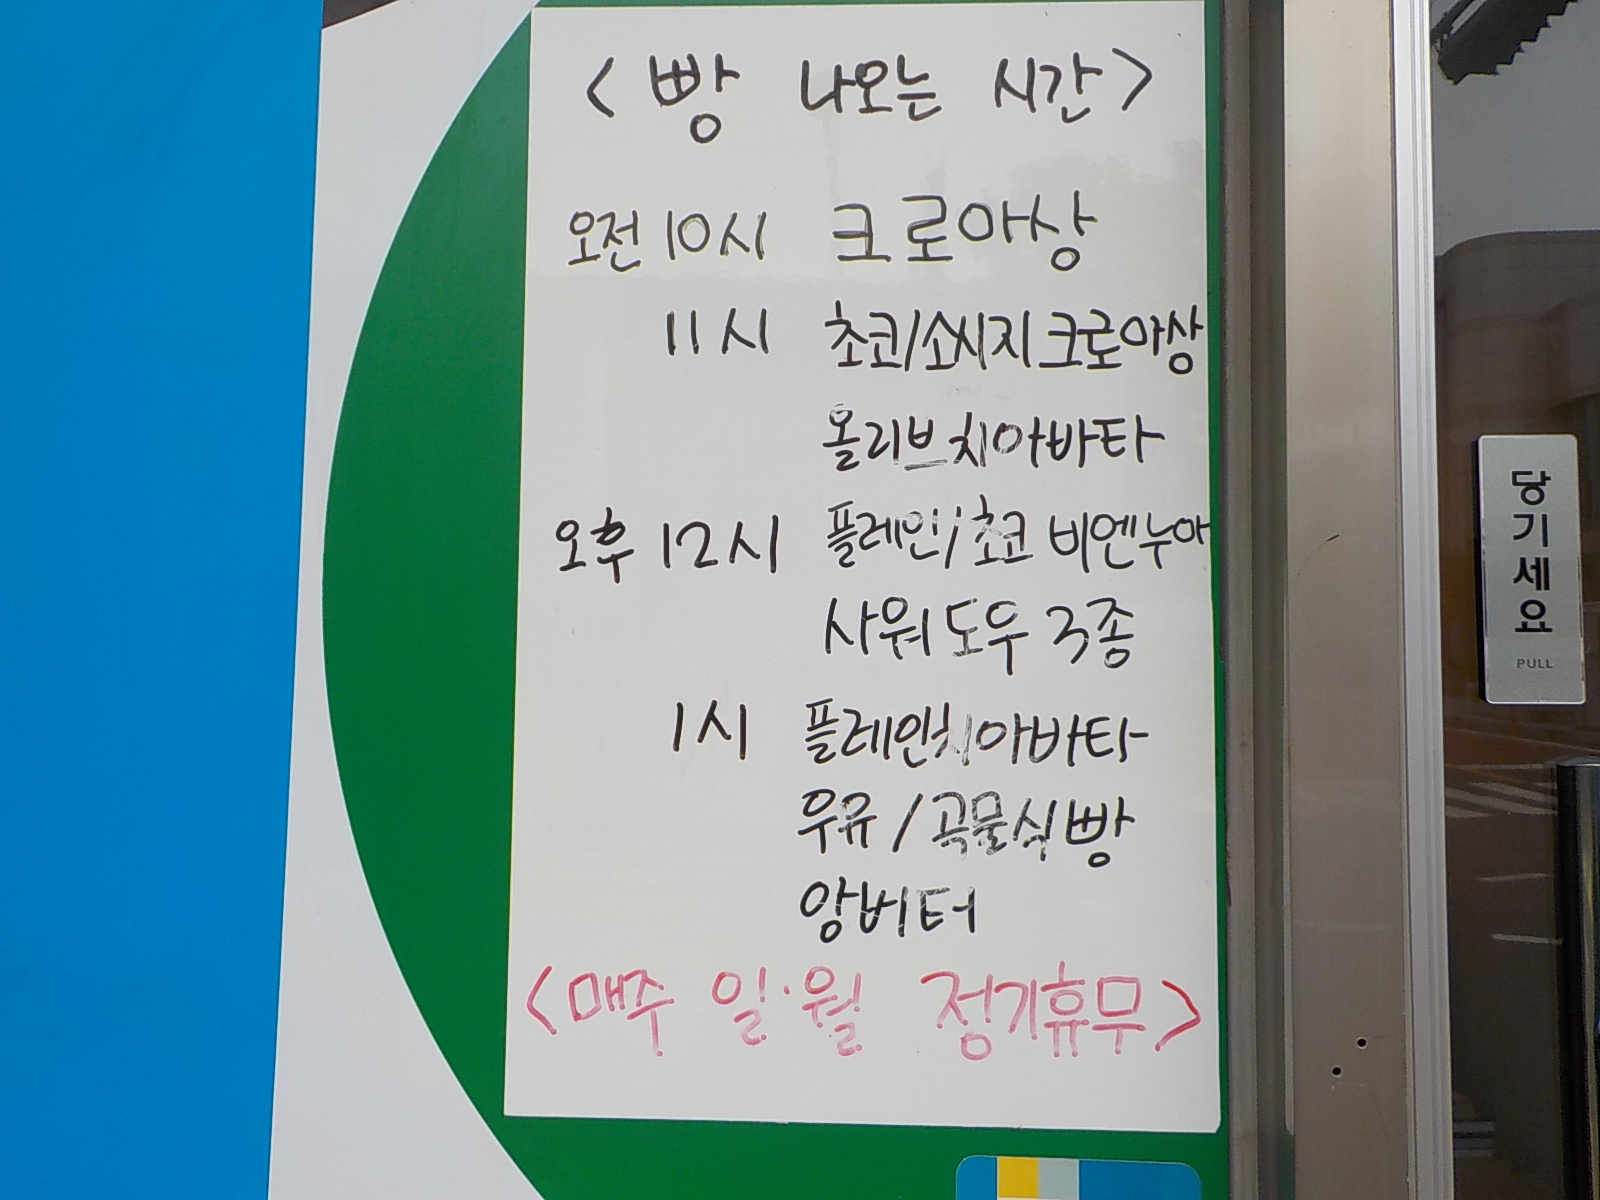 <빵 나오는 시간>
오전 10시 크로아상
11시 초코/소시지 크로아상
올리브 치아바타
오후 12시 플레인/초코 비엔누아
사워도우 3종
1시 플레인치아바타
우유/곡물식빵
앙버터
<매주 일·월 정기휴무>
당기세요
PULL